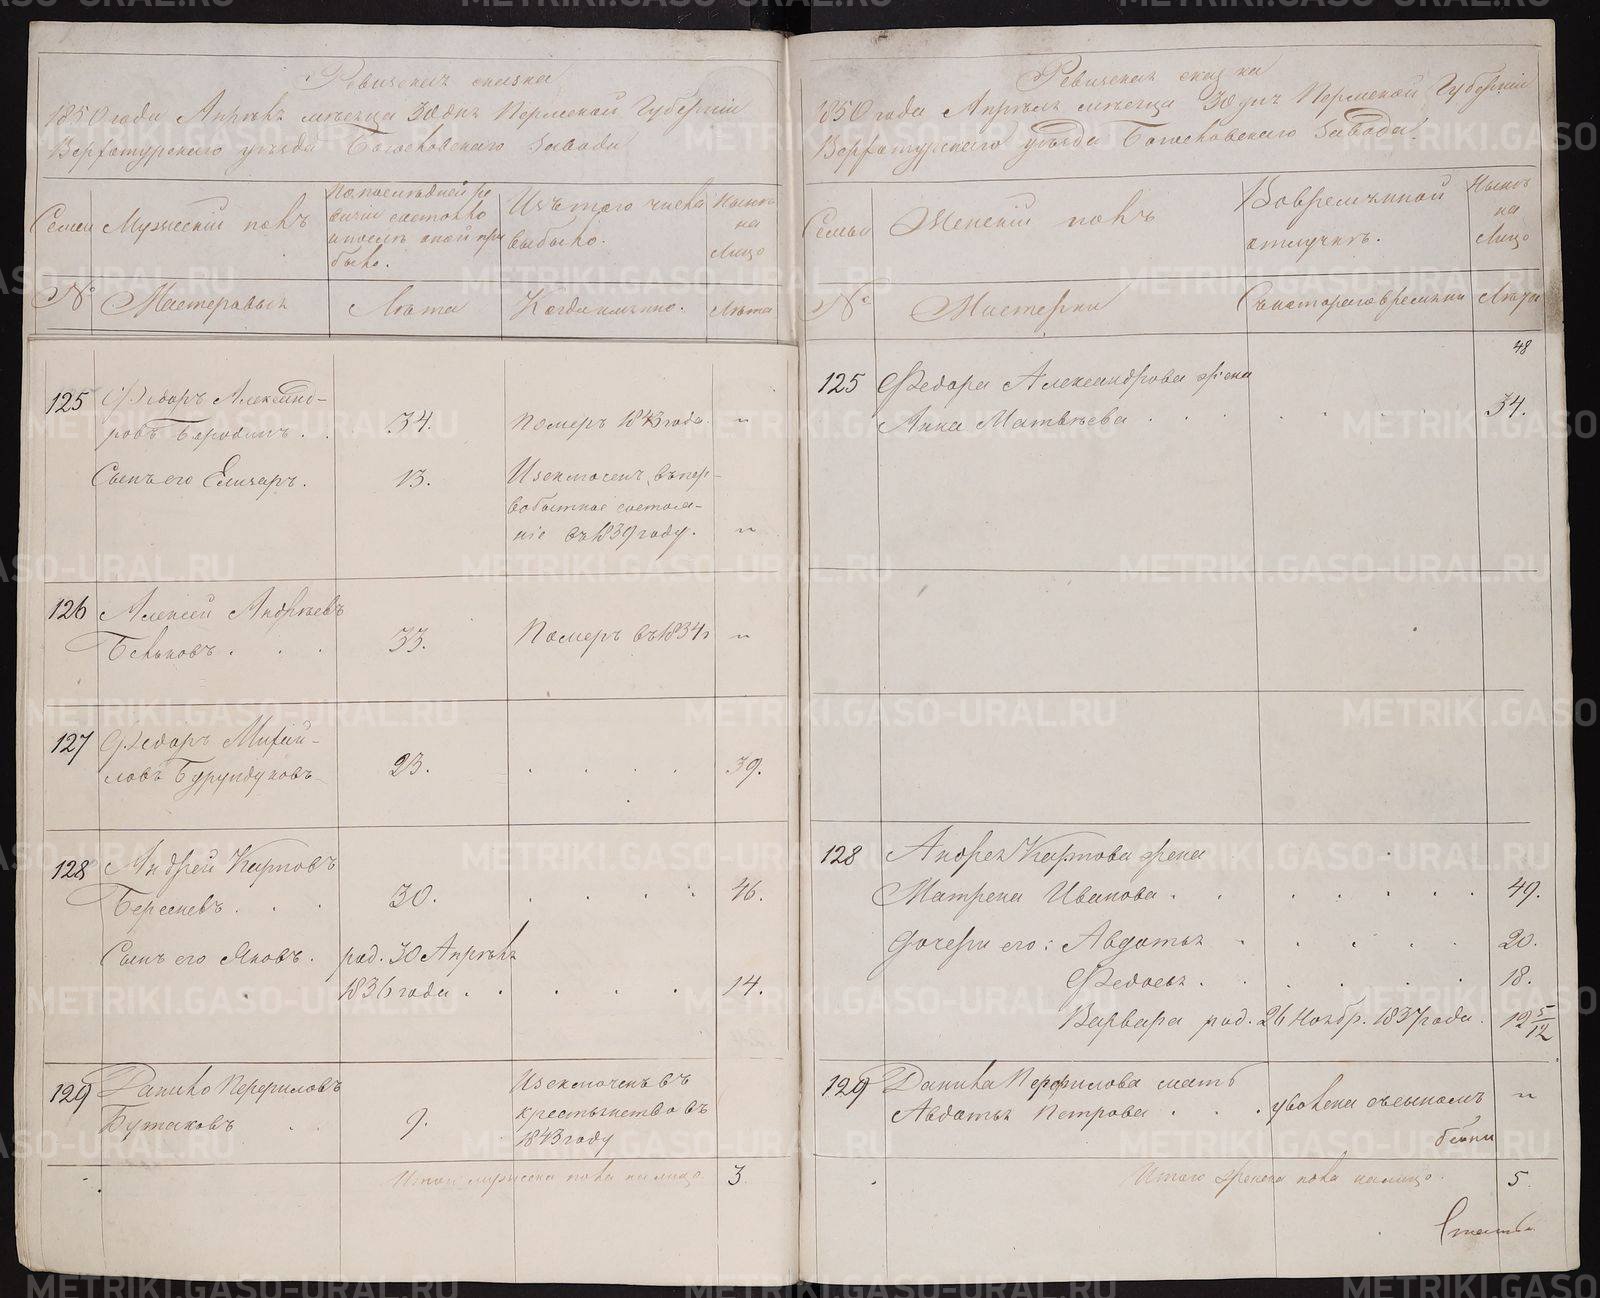 Ревизская сказка
1850 года Апреля месяца 30 дня Пермской Губернии
Верхотурского уезда Богословского завода
Семьи
Мужеский полъ
По последней ре
визiи состояло
и после оной при
было.
Изъ того числа
выбыло.
Ныне
на
лицо
№
Мастеровыя
Лета
Когда именно.
Лета
125 Федоръ Александ-
ровъ Бородинъ . . 34. Померъ 1843 года. "
Сынъ его Елизаръ. 13. Изключенъ въ пер-
вобытное состоя-
нiе въ 1839 году. "
126 Алексей Андреевъ
Бельковъ . . . 33. Померъ въ 1834 г "
127 Федоръ Михай-
ловъ Бурундуковъ 23. . . . . 39.
128 Андрей Карповъ
Береневъ . . . 30. . . . . 46.
Сынъ его Яковъ. род. 30 Апреля
1836 года . . . . . 14.
129 Данило Перфиловъ
Бутаковъ . . 9. Изключенъ въ
крестьянство въ
1843 году
Итого мужеска пола на лицо 3.
Ревизская сказка
1850 года Апреля месяца 30 дня Пермской Губернiи
Верхотурского уезда Богословского завода.
Семьи
Женскiй полъ
Во временной
отлучке.
Ныне
на
лицо
№
Мастерки
Съ котораго времени
Лета
48
125 Федора Александрова жена
Анна Матвеева . . . . . 34.
128 Андрея Карпова жена
Матрена Иванова . . . . . . . 49.
Дочери его: Авдотья . . . . . 20.
Федосья . . . . . 18.
Варвара род. 26 Ноябр. 1837 года. 12 5/12
129 Данила Перфилова мать
Авдотья Петрова . . . уволена съ сыномъ "
Итого женска пола на лицо. 5.